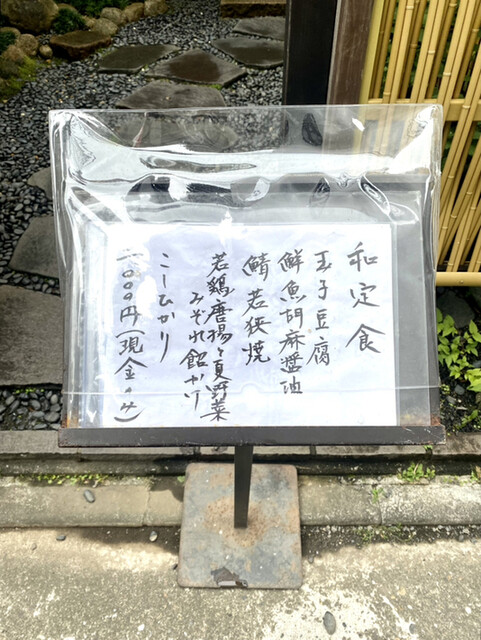 和定食
玉子豆腐
鮮魚胡麻醤油
鯖若狭焼
若鶏唐揚と夏野菜
みぞれ餡かけ
こしひかり
二〇〇〇円(現金のみ)